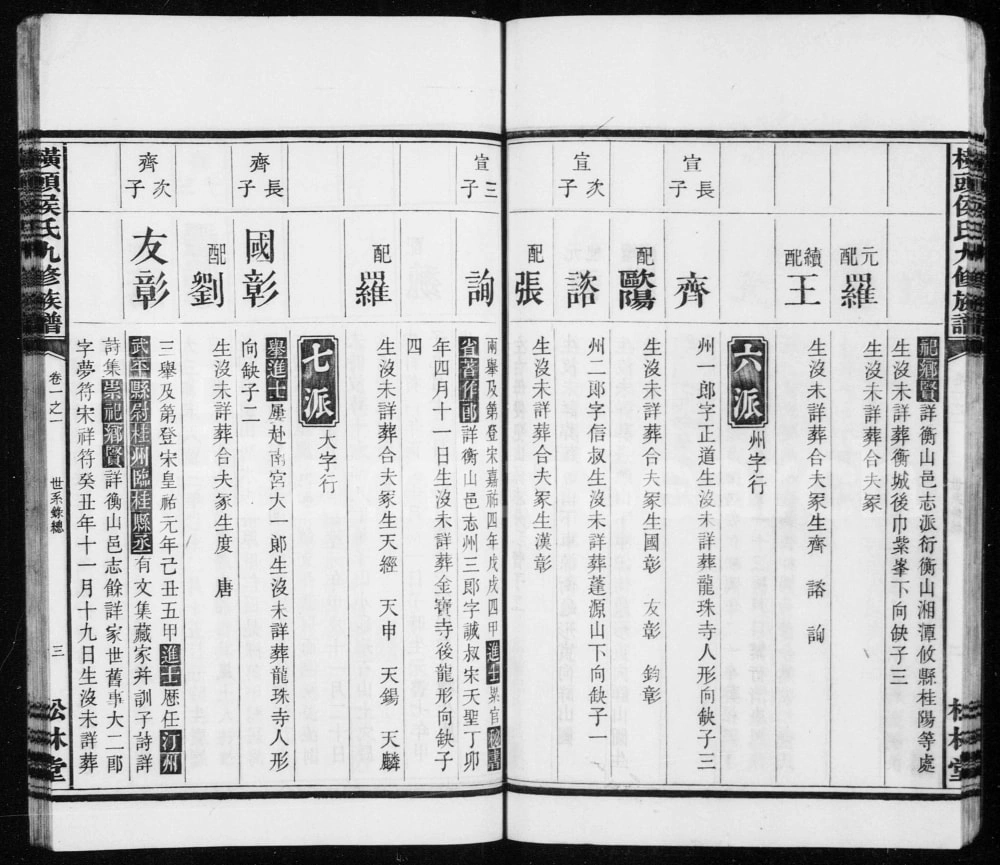 祀鄉賢詳衡山邑志派衍衡山湘潭攸縣桂陽等處
生沒未詳葬衡城後巾紫峯下向缺子三
元配羅
生沒未詳葬合夫冢
續配王
生沒未詳葬合夫冢生齊 諮 詢
六派
州字行
宣長子
齊
州一郎字正道生沒未詳葬龍珠寺人形向缺子三
配歐陽
生沒未詳葬合夫冢生國彰 友彰 鈞彰
宣次子
諮
州二郎字信叔生沒未詳葬蓬源山下向缺子一
配張
生沒未詳葬合夫冢生漢彰
宣三子
詢
兩舉及第登宋嘉祐四年戊戌四甲進士累官秘書
省著作郎詳衡山邑志州三郎字誠叔宋天聖丁卯
年四月十一日生沒未詳葬金寶寺後龍形向缺子
四
配羅
生沒未詳葬合夫冢生天經 天申 天錫 天麟
七派
大字行
齊長子
國彰
舉進士屢赴南宮大一郎生沒未詳葬龍珠寺人形
向缺子二
配劉
生沒未詳葬合夫冢生度 唐
齊次子
友彰
三舉及第登宋皇祐元年己丑五甲進士歷任汀州
武平縣尉桂州臨桂縣丞有文集藏家并訓子詩詳
詩集崇祀鄉賢詳衡山邑志餘詳家世舊事大二郎
字夢符宋祥符癸丑年十一月十九日生沒未詳葬
橫頭侯氏九修族譜
卷一之一
世系錄總
三
松林堂